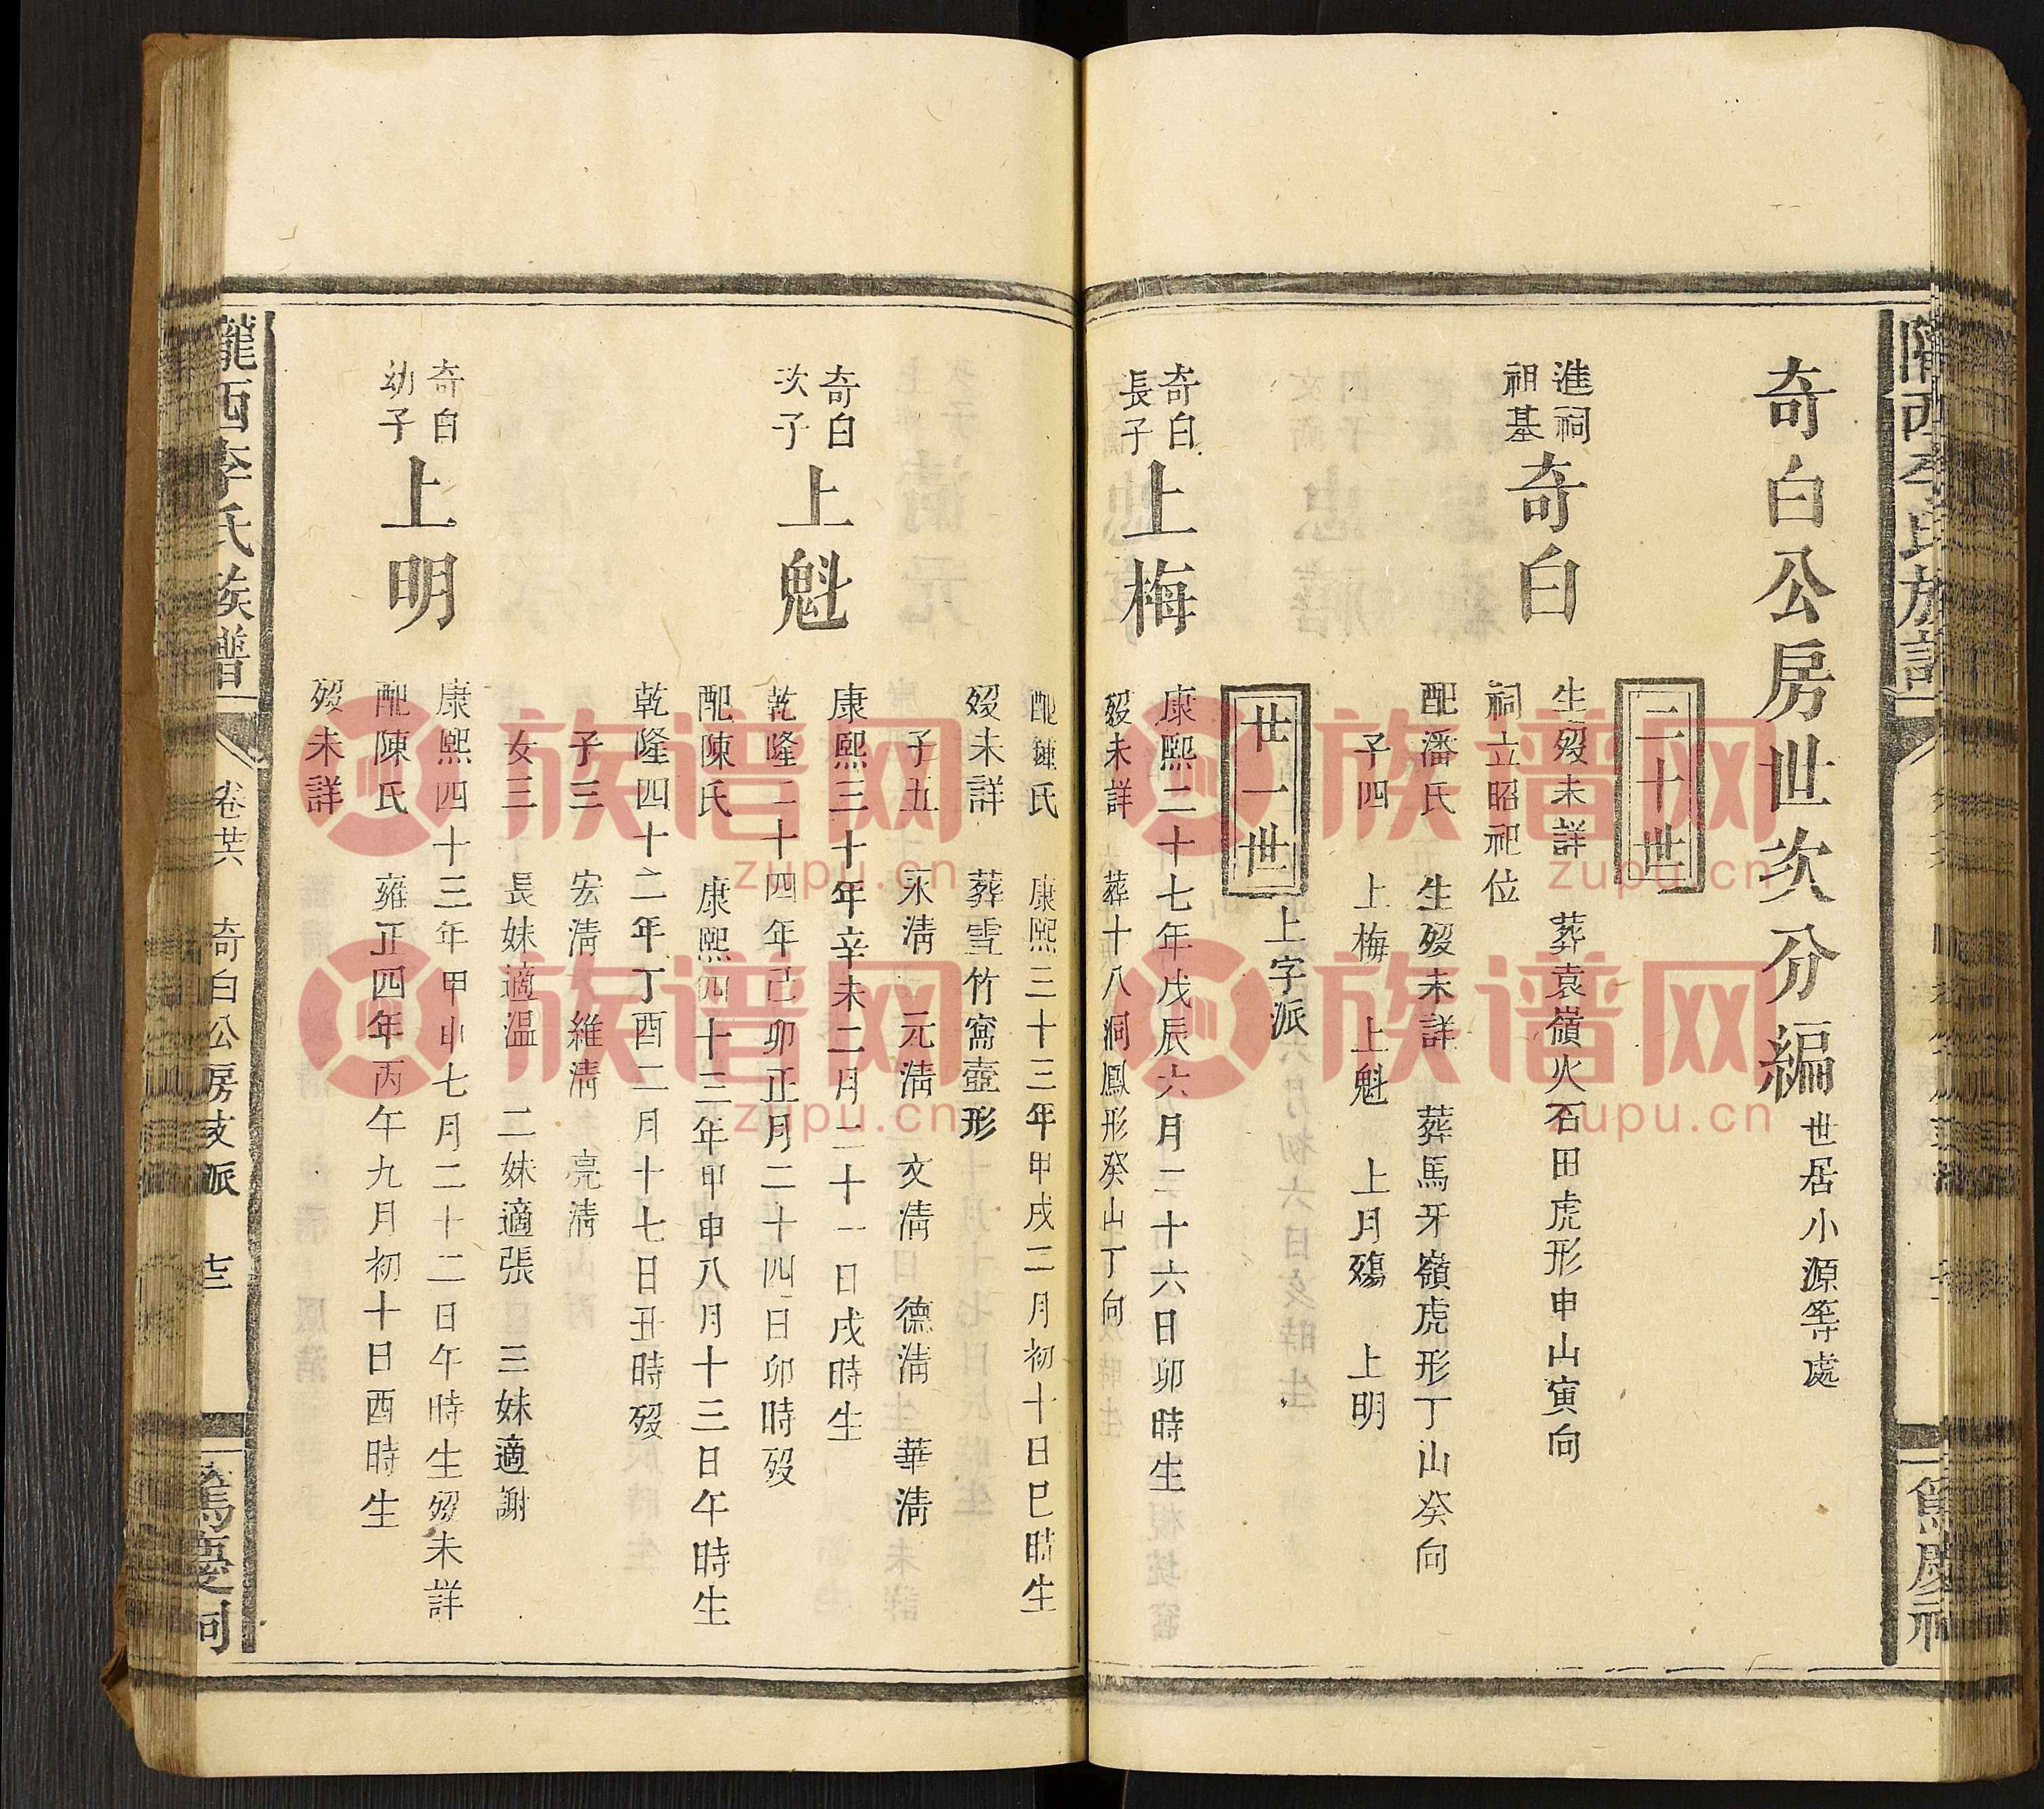 奇白公房世次分編 世居小源等處
二十世
進祠
祖基
奇白
生歿未詳 葬袁嶺火石田虎形申山寅向
祠立昭祀位
配潘氏 生歿未詳 葬馬牙嶺虎形丁山癸向
子四 上梅 上魁 上月殤 上明
廿一世 上字派
奇白
長子
上梅
康熙二十七年戊辰六月二十六日卯時生
歿未詳 葬十八洞鳳形癸山丁向
配鍾氏 康熙三十三年甲戌二月初十日巳時生
歿未詳 葬雪竹窩壺形
子五 永淸 元淸 文淸 德淸 華淸
奇白
次子
上魁
康熙三十年辛未二月二十一日戌時生
乾隆二十四年己卯正月二十四日卯時歿
配陳氏 康熙四十三年甲申八月十三日午時生
乾隆四十二年丁酉二月十七日丑時歿
子三 宏淸 維淸 亮淸
女三 長妹適温 二妹適張 三妹適謝
奇白
幼子
上明
康熙四十三年甲申七月二十二日午時生歿未詳
配陳氏 雍正四年丙午九月初十日酉時生
歿未詳
隴西李氏族譜 卷廿六 奇白公房支派 十三 篤慶祠
族谱网
zupu.cn
族谱网
zupu.cn
族谱网
zupu.cn
族谱网
zupu.cn